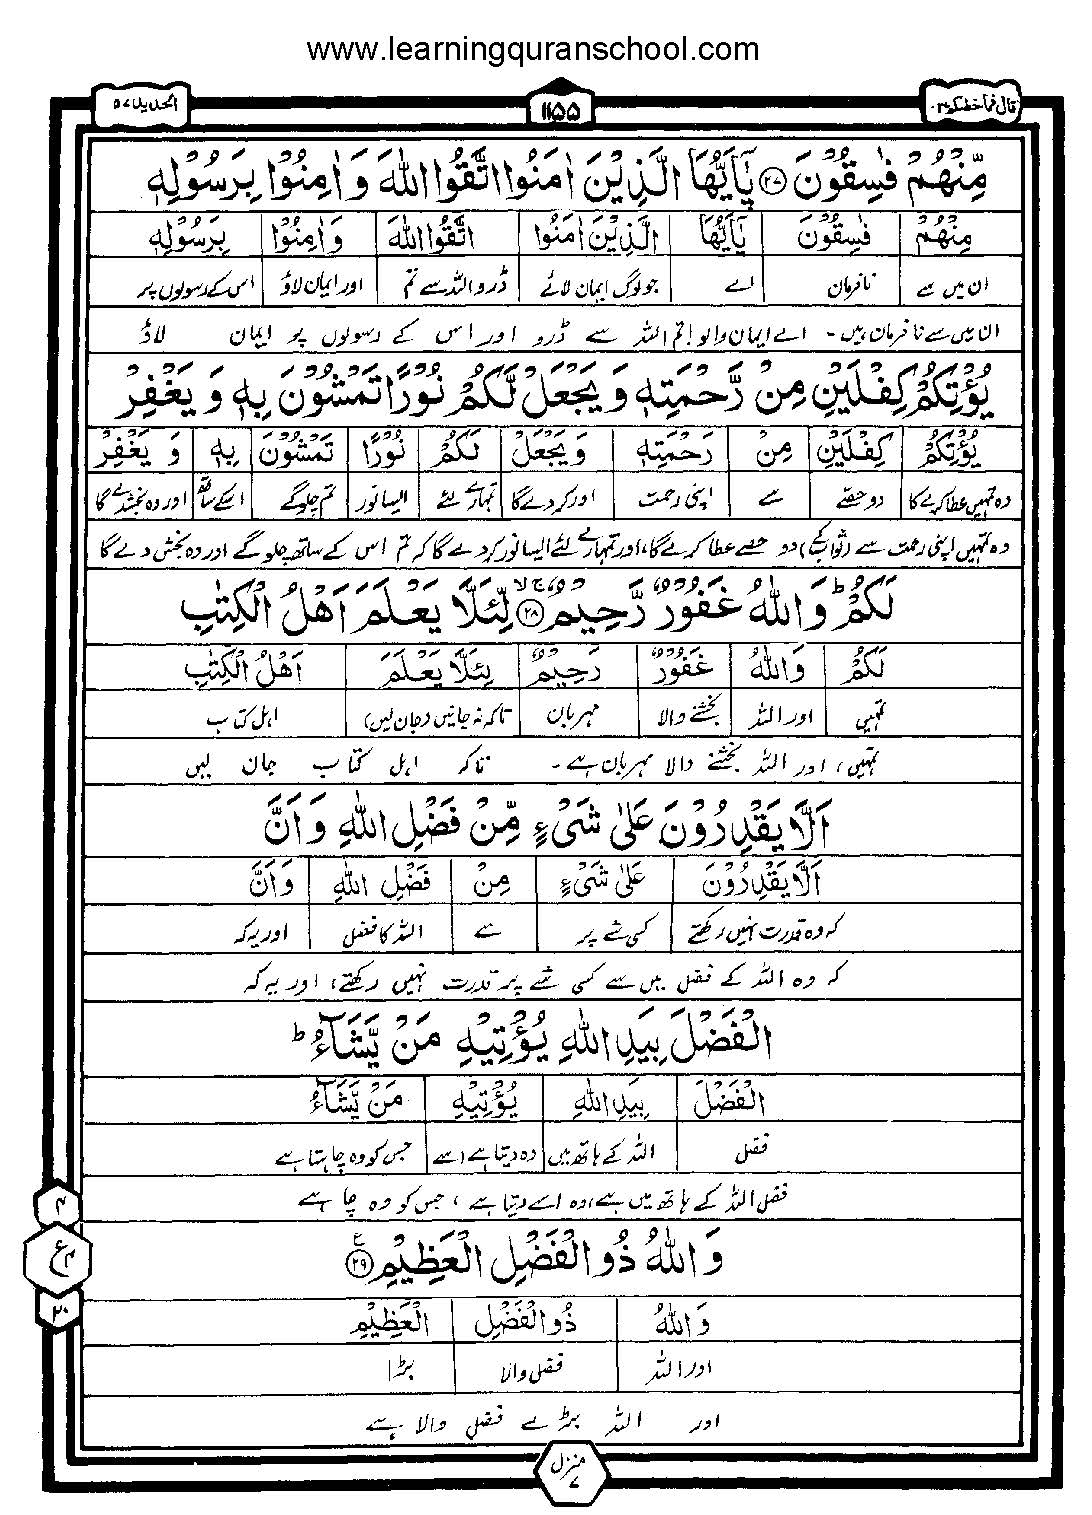 www.learningquranschool.com
الحدید ۵۷
۱۱۵۵
قال فما خطبکم ۲۷
مِّنْهُمْ فٰسِقُوْنَ ۲۷ یٰۤاَیُّهَا الَّذِیْنَ اٰمَنُوا اتَّقُوا اللّٰهَ وَ اٰمِنُوْا بِرَسُوْلِهٖ
مِنْهُمْ فٰسِقُوْنَ یٰۤاَیُّهَا الَّذِیْنَ اٰمَنُوا اتَّقُوا اللّٰهَ وَ اٰمِنُوْا بِرَسُوْلِهٖ
ان میں سے نافرمان اے جو لوگ ایمان لائے ڈرو اللہ سے تم اور ایمان لاؤ اس کے رسولوں پر
ان میں سے نافرمان ہیں۔ اے ایمان والو! تم اللہ سے ڈرو اور اس کے رسولوں پر ایمان لاؤ
یُؤْتِكُمْ كِفْلَیْنِ مِنْ رَّحْمَتِهٖ وَ یَجْعَلْ لَّكُمْ نُوْرًا تَمْشُوْنَ بِهٖ وَ یَغْفِرْ
یُؤْتِكُمْ كِفْلَیْنِ مِنْ رَحْمَتِهٖ وَ یَجْعَلْ لَكُمْ نُوْرًا تَمْشُوْنَ بِهٖ وَ یَغْفِرْ
وہ تمہیں عطا کرے گا دو حصے سے اپنی رحمت اور کر دے گا تمہارے لئے ایسا نور تم چلو گے اسکے ساتھ اور وہ بخشدے گا
وہ تمہیں اپنی رحمت سے (ثواب کے) دو حصے عطا کرے گا، اور تمہارے لئے ایسا نور کر دے گا کہ تم اس کے ساتھ چلو گے اور وہ بخش دے گا
لَكُمْ ؕ وَ اللّٰهُ غَفُوْرٌ رَّحِیْمٌ ۲۸ لِّئَلَّا یَعْلَمَ اَهْلُ الْكِتٰبِ
لَكُمْ وَ اللّٰهُ غَفُوْرٌ رَحِیْمٌ لِئَلَّا یَعْلَمَ اَهْلُ الْكِتٰبِ
تمہیں اور اللہ بخشنے والا مہربان تاکہ نہ جانیں (جان لیں) اہل کتاب
تمہیں، اور اللہ بخشنے والا مہربان ہے۔ تاکہ اہل کتاب جان لیں
اَلَّا یَقْدِرُوْنَ عَلٰى شَیْءٍ مِّنْ فَضْلِ اللّٰهِ وَ اَنَّ
اَلَّا یَقْدِرُوْنَ عَلٰى شَیْءٍ مِنْ فَضْلِ اللّٰهِ وَ اَنَّ
کہ وہ قدرت نہیں رکھتے کسی شے پر سے اللہ کا فضل اور یہ کہ
کہ وہ اللہ کے فضل میں سے کسی شے پر قدرت نہیں رکھتے، اور یہ کہ
الْفَضْلَ بِیَدِ اللّٰهِ یُؤْتِیْهِ مَنْ یَّشَآءُ ؕ
الْفَضْلَ بِیَدِ اللّٰهِ یُؤْتِیْهِ مَنْ یَّشَآءُ
فضل اللہ کے ہاتھ میں وہ دیتا ہے اسے جس کو وہ چاہتا ہے
فضل اللہ کے ہاتھ میں ہے، وہ اسے دیتا ہے، جس کو وہ چاہے
۴
وَ اللّٰهُ ذُو الْفَضْلِ الْعَظِیْمِ ۲۹ ع
ع
۲۰
وَ اللّٰهُ ذُو الْفَضْلِ الْعَظِیْمِ
اور اللہ فضل والا بڑا
اور اللہ بڑے فضل والا ہے
منزل ۷